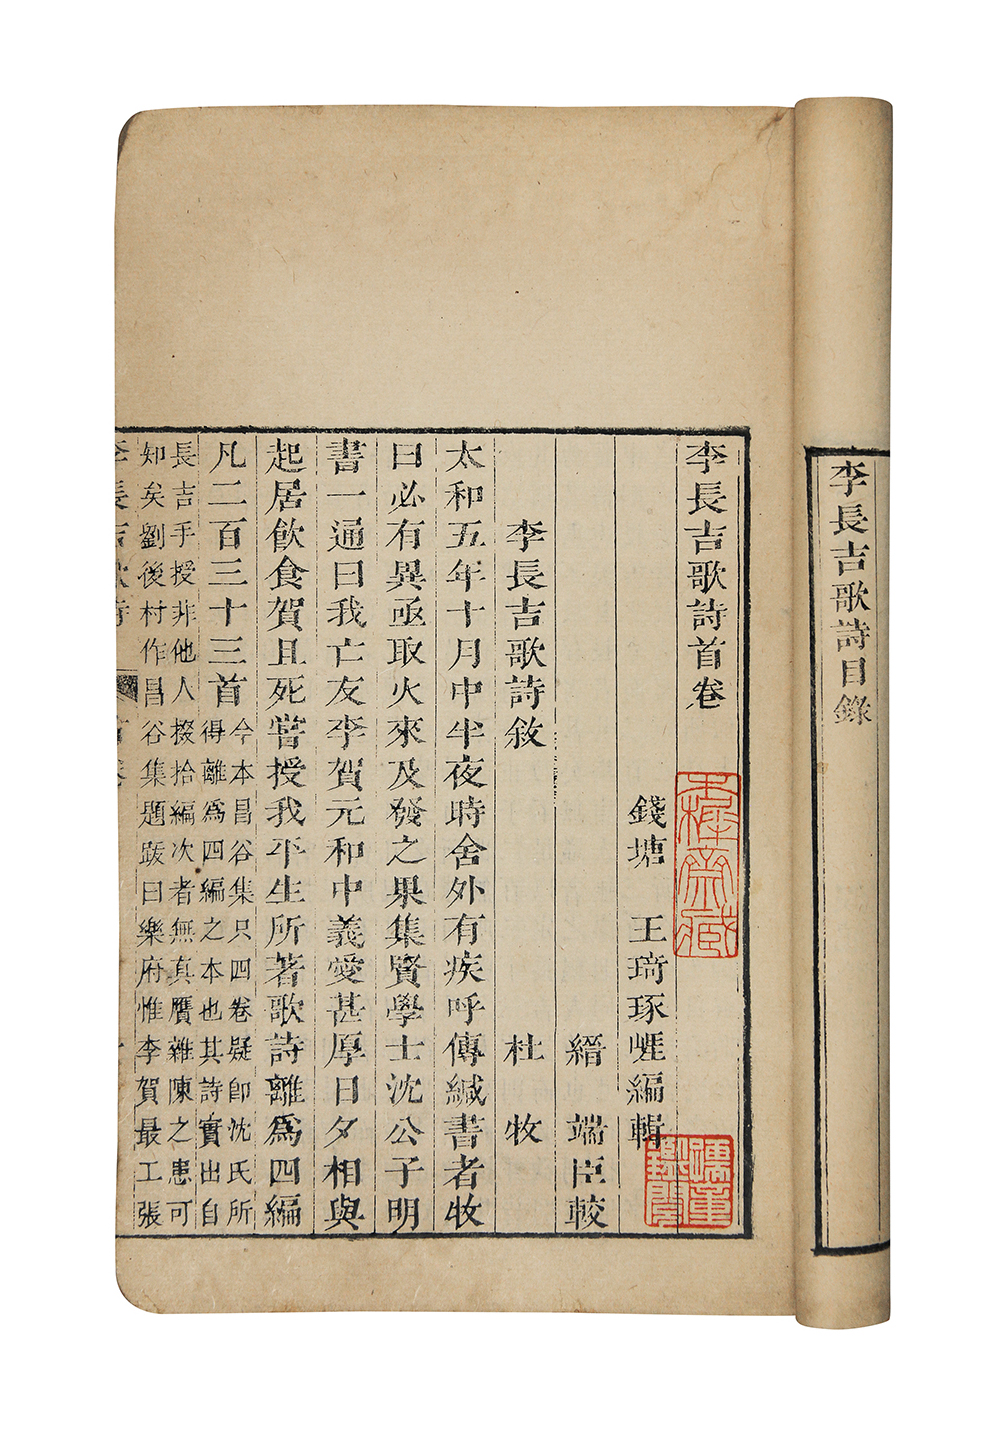 李長吉歌詩目錄
李長吉歌詩首卷
錢塘 王琦琢崕編輯
縉 端臣較
李長吉歌詩敘
杜 牧
太和五年十月中半夜時舍外有疾呼傳緘書者牧
曰必有異亟取火來及發之果集賢學士沈公子明
書一通曰我亡友李賀元和中義愛甚厚日夕相與
起居飲食賀且死嘗授我平生所著歌詩離爲四編
凡二百三十三首
今本昌谷集只四卷疑卽沈氏所
得離爲四編之本也其詩實出自
長吉手授非他人掇拾編次者無真贋雜陳之患可
知矣劉後村作昌谷集題跋曰樂府惟李賀最工張
李長吉歌詩